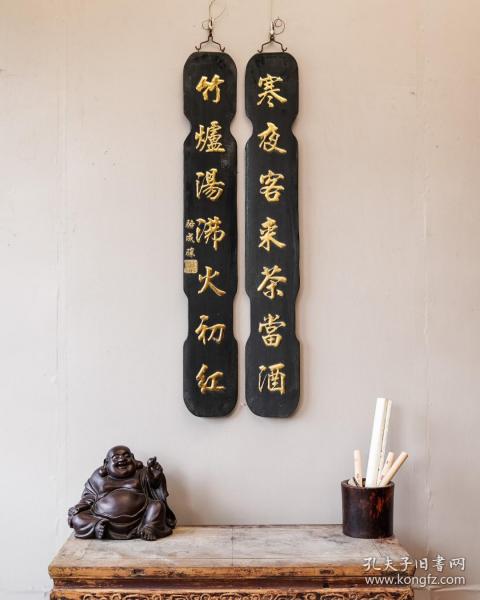 寒夜客来茶當酒
竹爐湯沸火初紅
孔夫子旧書网
www.kongfz.com